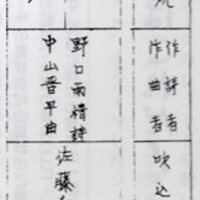 作詩者
作曲者
吹込
野口雨情詩
中山晋平曲
佐藤